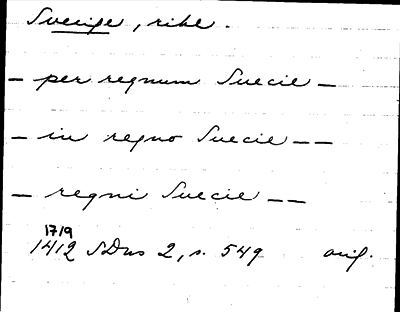 Sverige, rike.
– per regnum Suecie –
– in regno Suecie – –
– regni Suecie – –
17/9
1412 SDns 2, s. 549 orig.